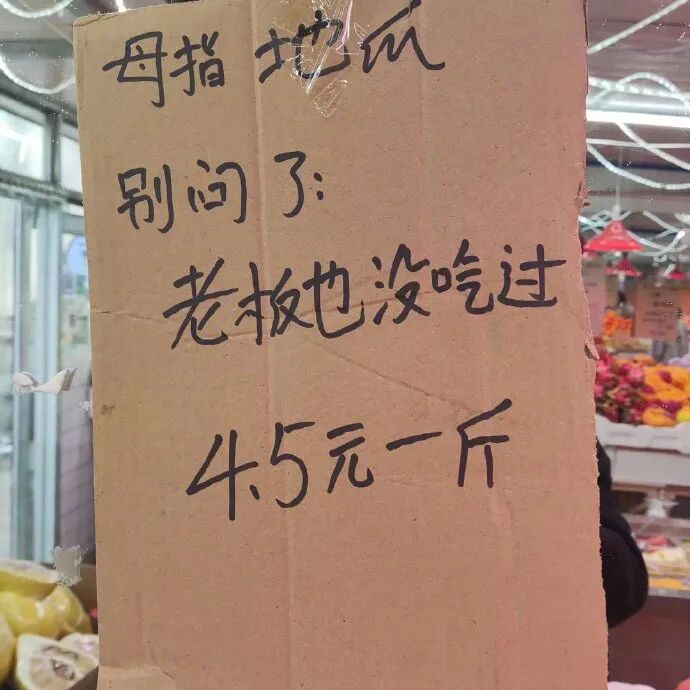 母指 地瓜
别问了:
老板也没吃过
4.5元一斤